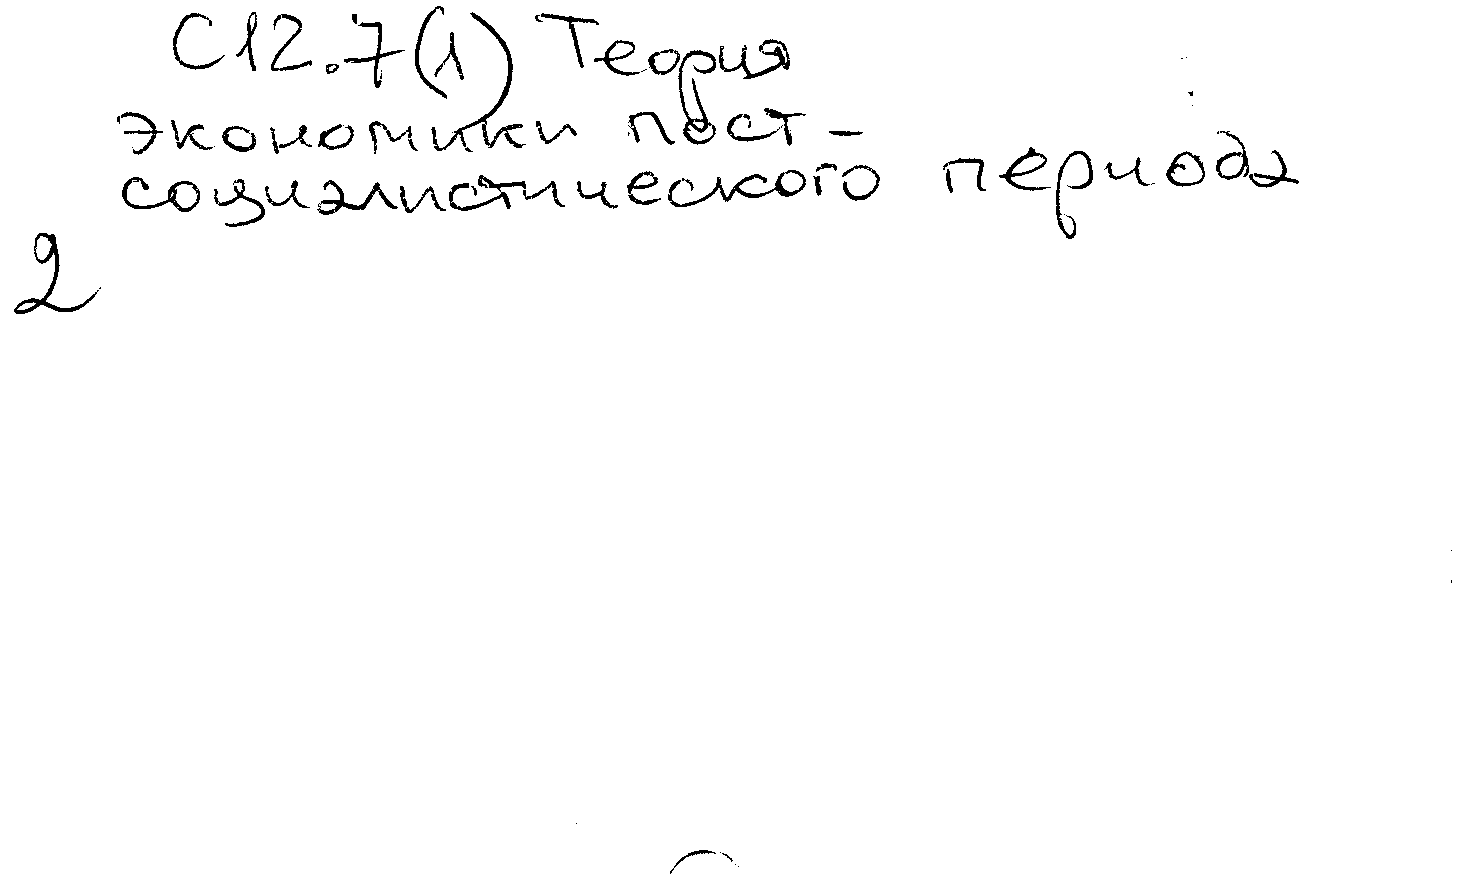 С12.7(1) Теория
экономики пост-
социалистического периода
2